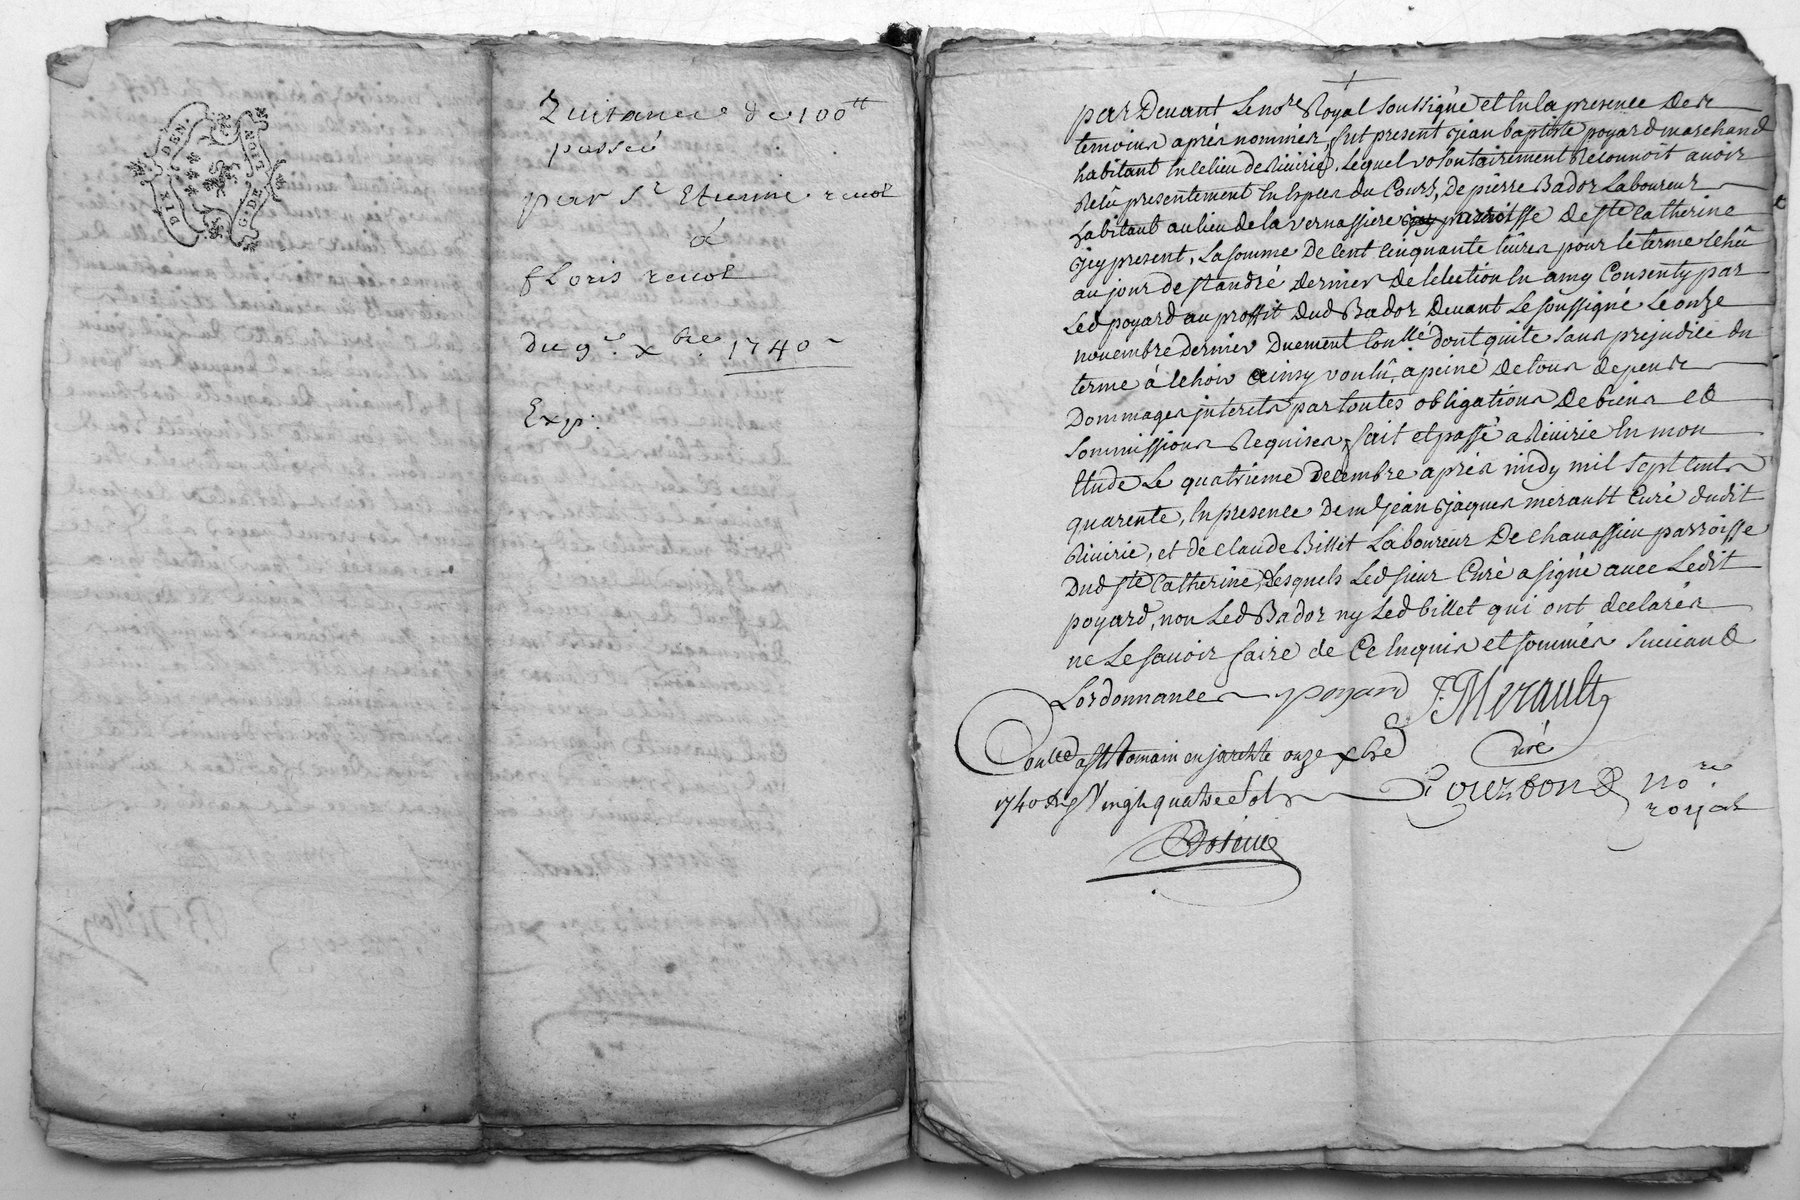 DIX DEN.
G. DE
Quitance de 100tt
passée
par Sr Etienne reuol
à
fLoris reuol
du 9e. xbre. 1740
Exp:
par Devant Le nore Royal soussigné et En la presence Des
temoins aprés nommés, fut present Jean baptiste poyard marchand
habitant En le lieu de Riuirie, Lequel volontairement Reconnoit auoir
Reçû presentement En Espece du Cours, De pierre Bador Laboureur
habitant au lieu de la vernassiere parroisse De ste Catherine
Icy present, La somme De Cent Cinquante liures pour le terme Echû
au jour de st andré Dernier De l'election En amy Consenty par
Led poyard au proffit Dud Bador Devant Le soussigné Le onze
novembre Dernier Duement Conllé dont quite sans prejudice du
terme à Echoir ainsy voulû, a peine De tous depens
Dommages interets par toutes obligations De biens et
sommissions Requises, fait et passé a Riuirie En mon
Etude Le quatrieme decembre aprés midy mil sept cents
quarente, En presence De mre Jean Jacques merault Curé dudit
Riuirie, et de Claude Billet Laboureur De Chauassieu parroisse
Dud ste Catherine, Lesquels Led sieur Curé a signé avec Ledit
poyard, non Led Bador ny Led billet qui ont declarés
ne Le sauoir faire de Ce Enquis et sommés suiuant
Lordonnance poyard J. Merault
Curé
Conllé a st Romain en jarest le onze xbre
1740 Rg Vingt quatre sols
Gourdon nore
royal